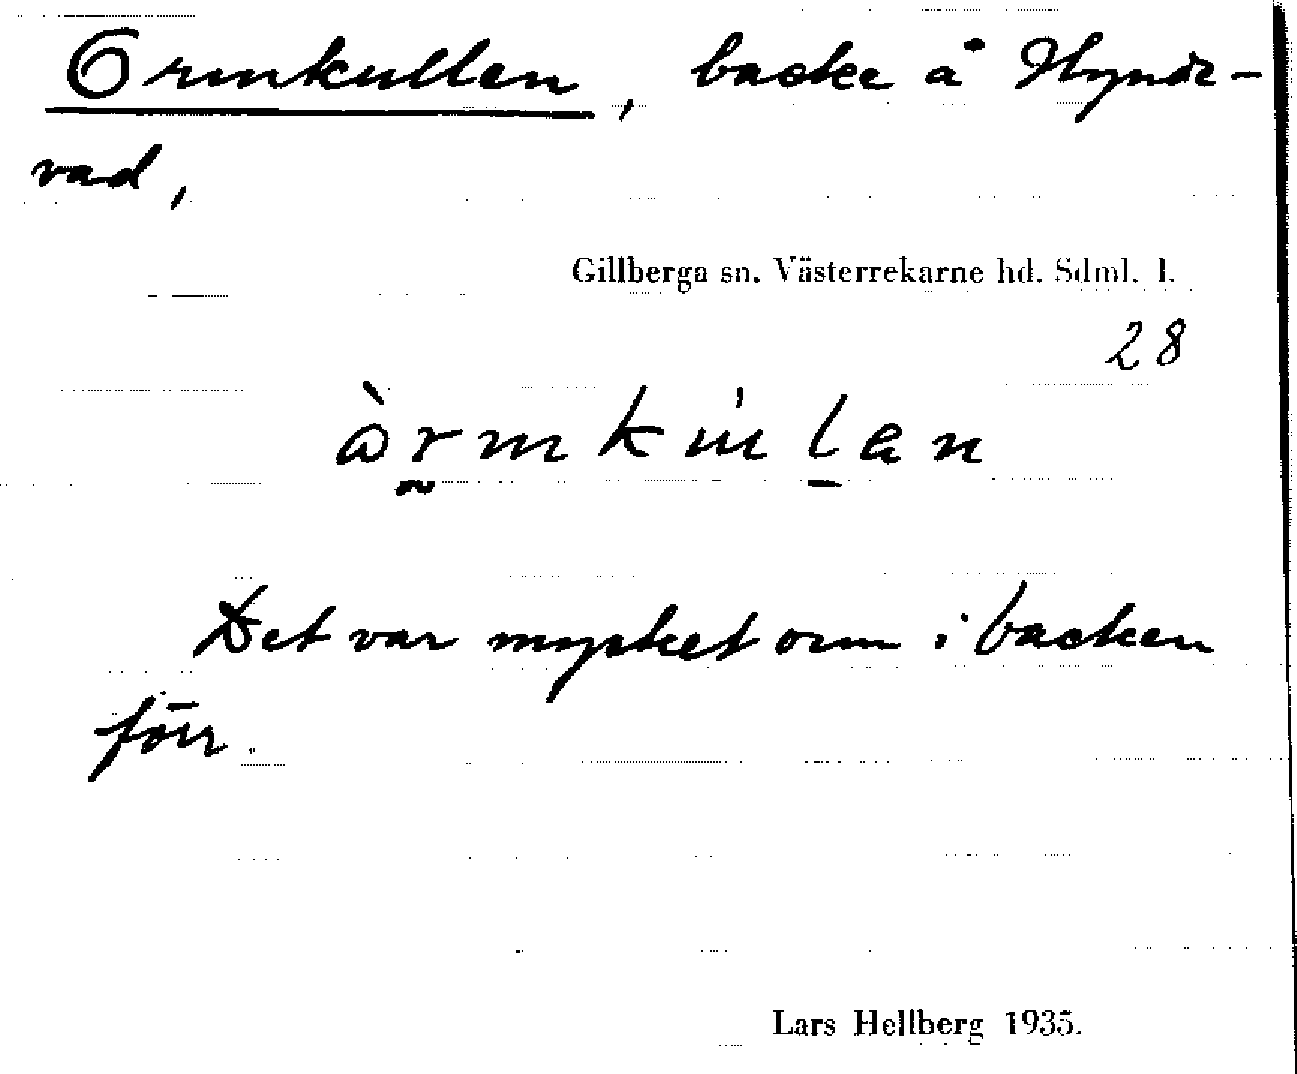 Ormkullen, backe å Hyndr-
vad,
Gillberga sn. Västerrekarne hd. Sdml. l.
28
Det var mycket orm i backen
förr.
Lars Hellberg 1935.